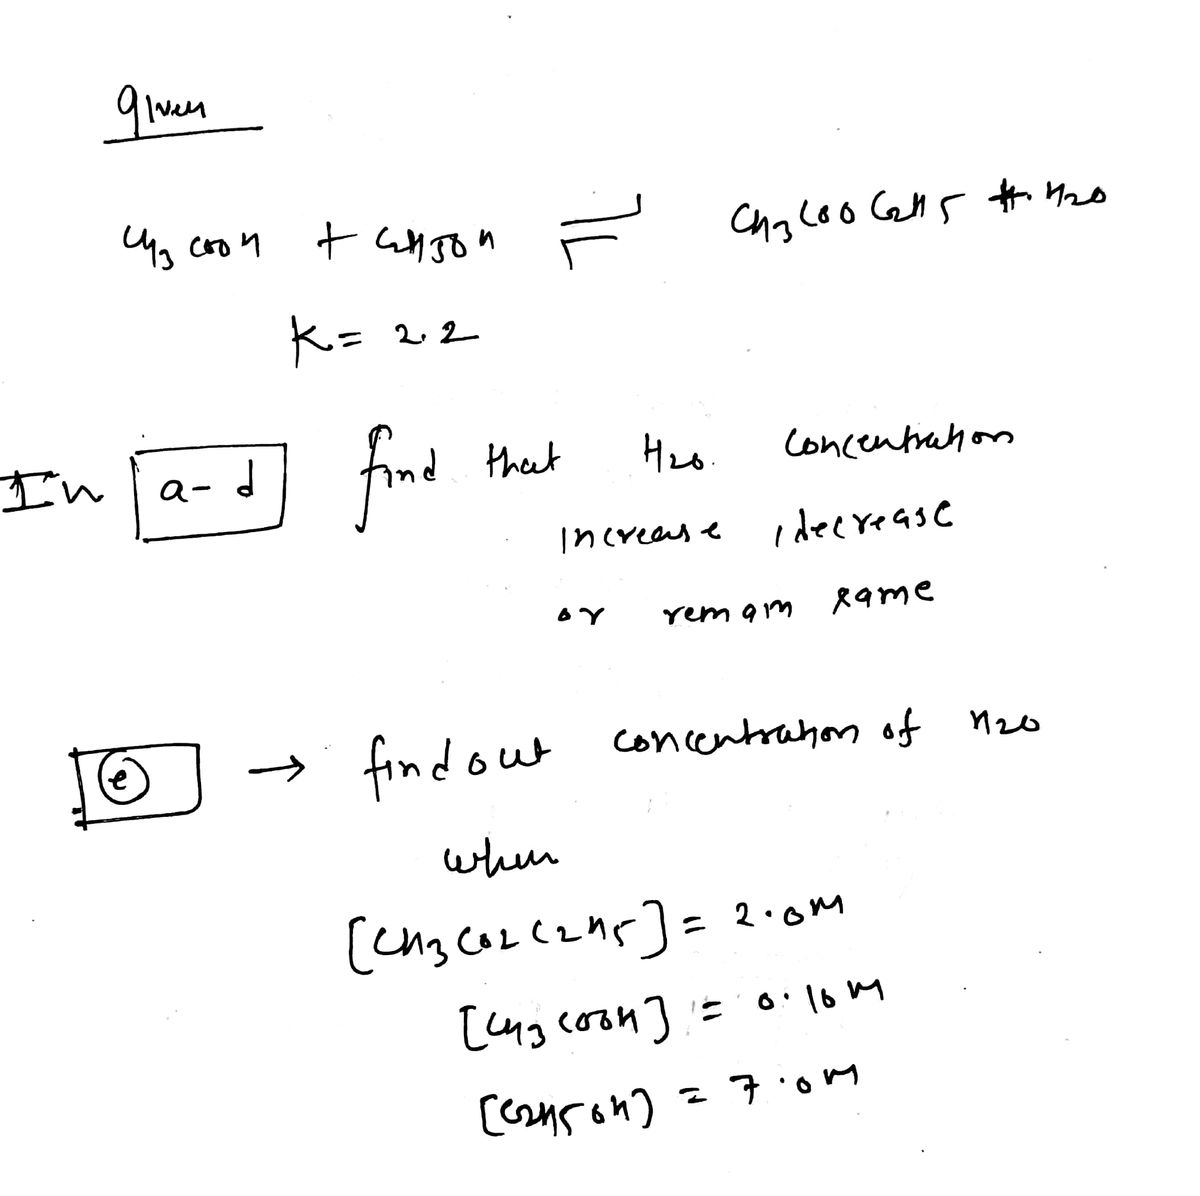 given
CH3 COOH + C2H5OH ⇌ CH3COOC2H5 + H2O
K = 2.2
In a-d find that H2O. concentration
increase, decrease
or remain same
e → find out concentration of H2O
when
[CH3CO2C2H5] = 2.0M
[CH3COOH] = 0.10M
[C2H5OH) = 7.0M